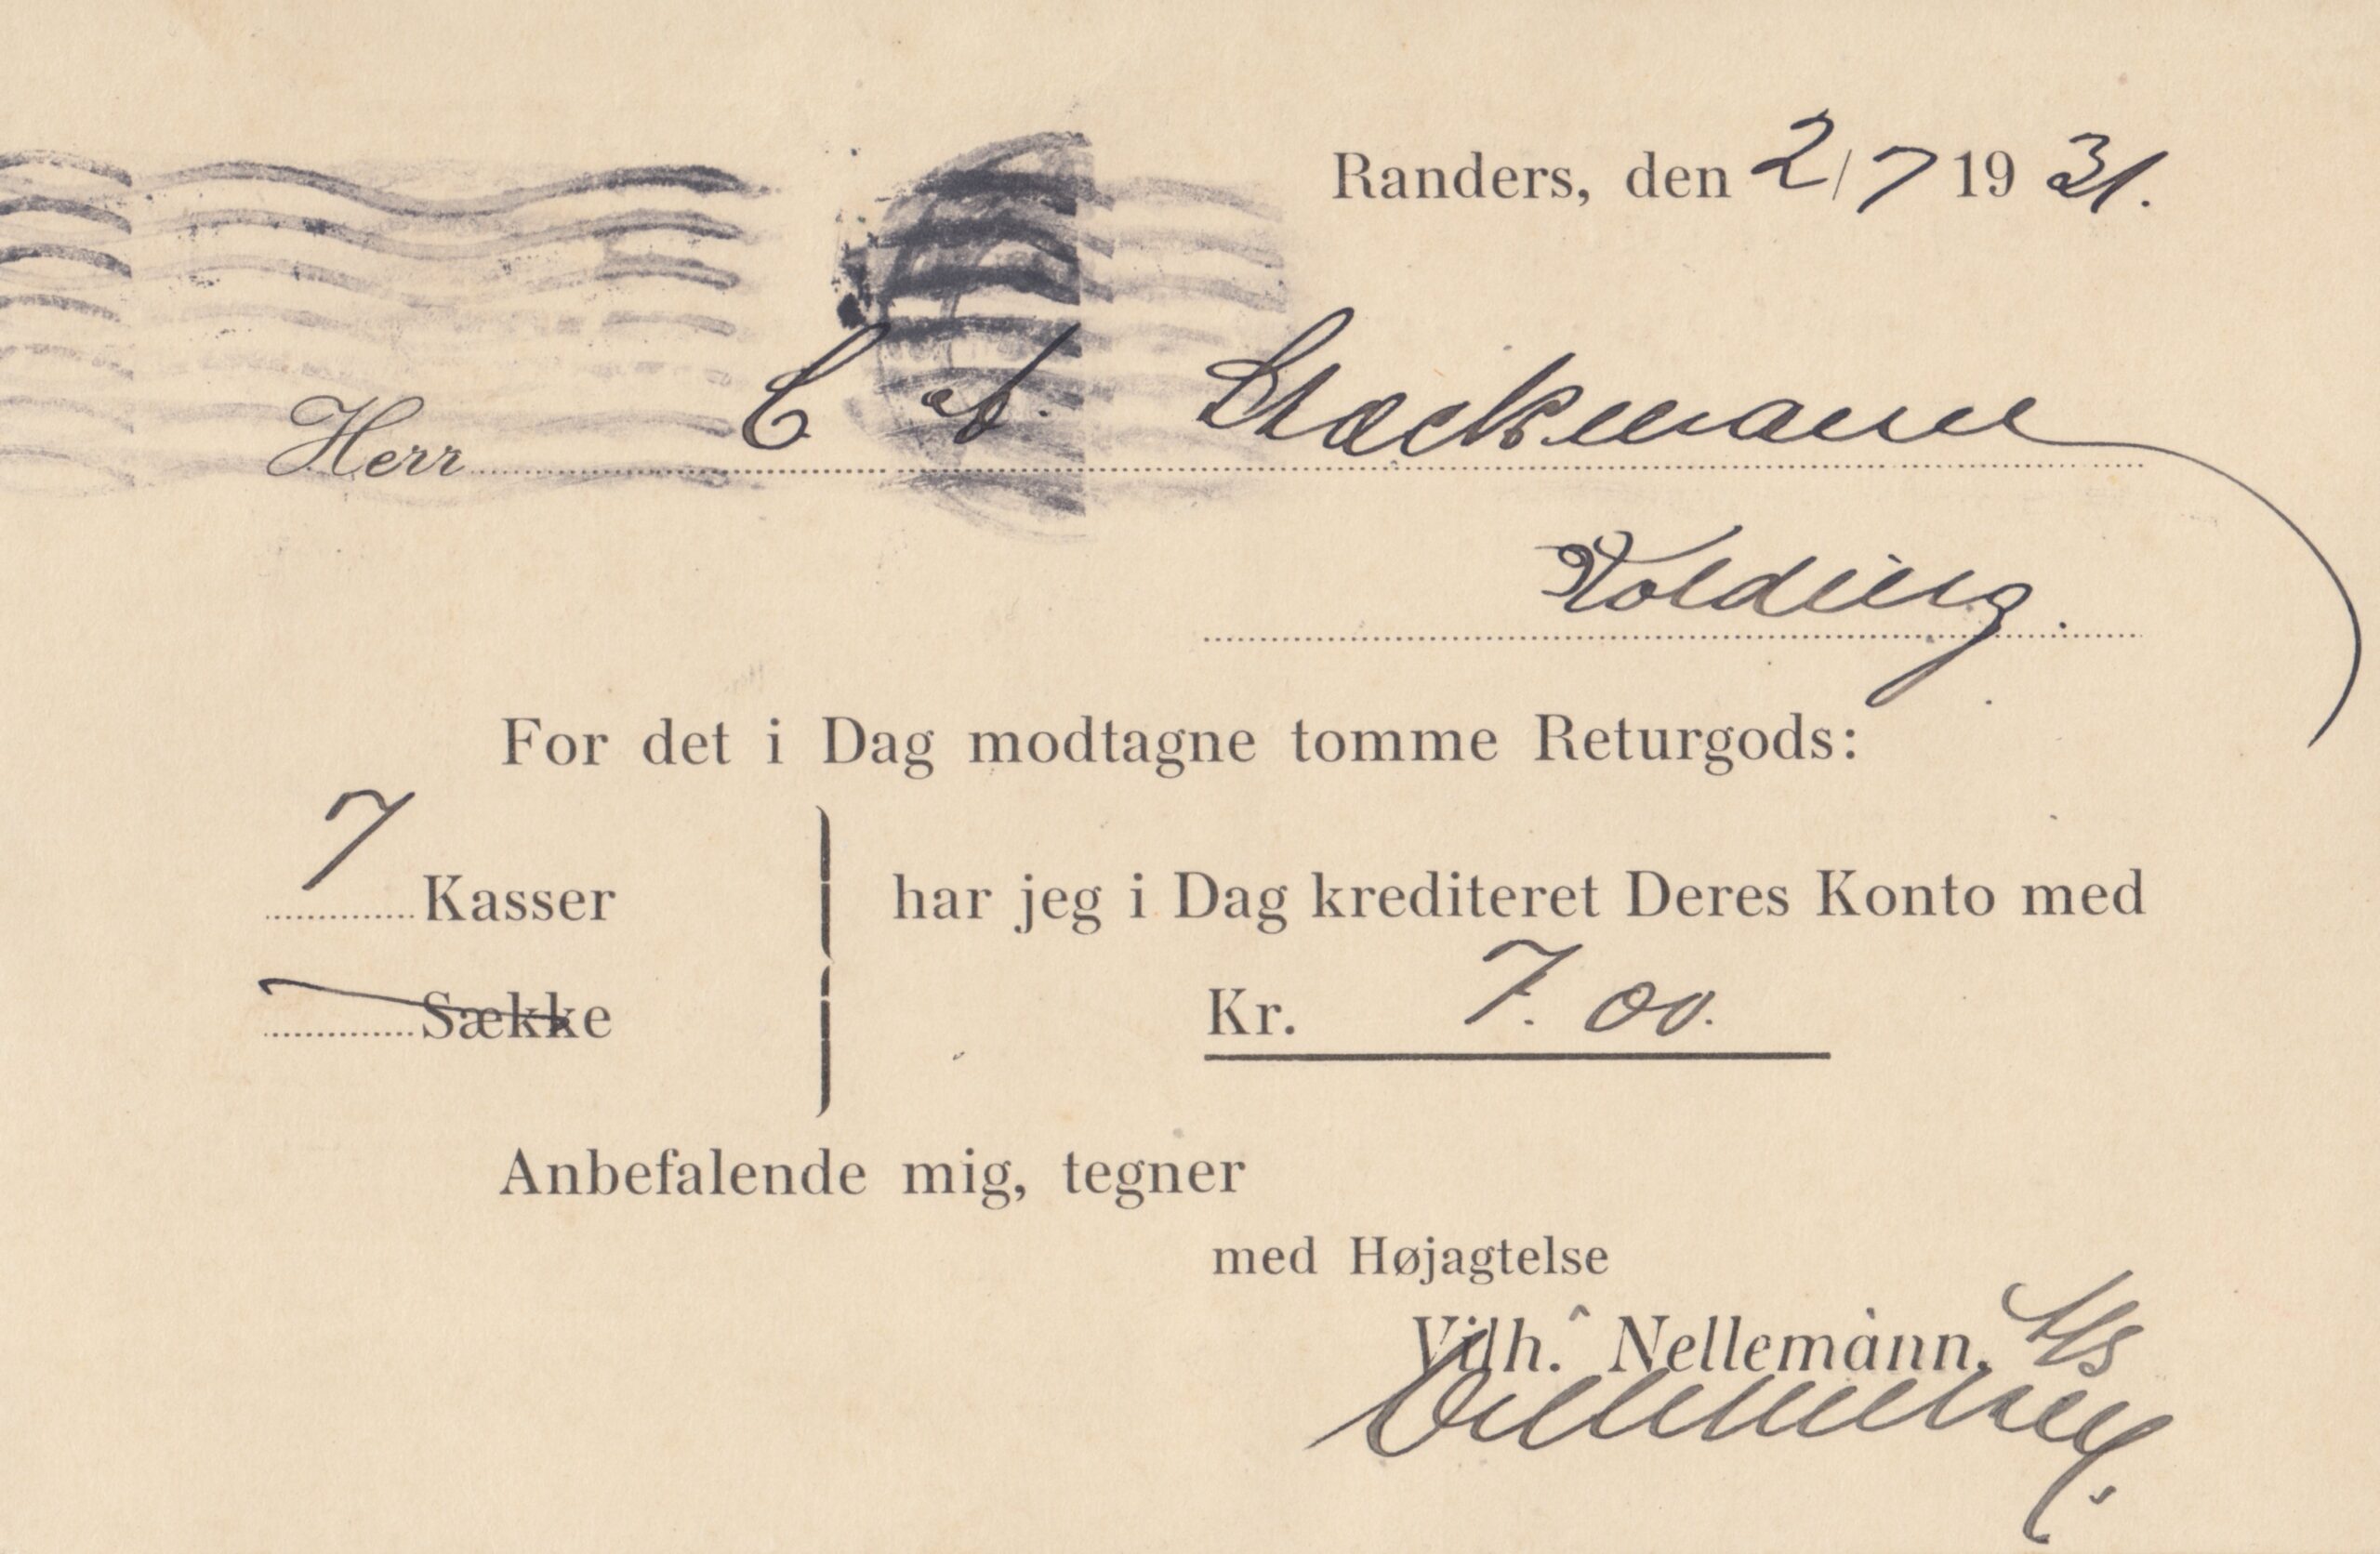 Randers, den 2/7 1931.
Herr C. A. Stockmann
Kolding.
For det i Dag modtagne tomme Returgods:
7 Kasser
har jeg i Dag krediteret Deres Konto med
Sække
Kr. 7.00.
Anbefalende mig, tegner
med Højagtelse
Vilh. Nellemann.